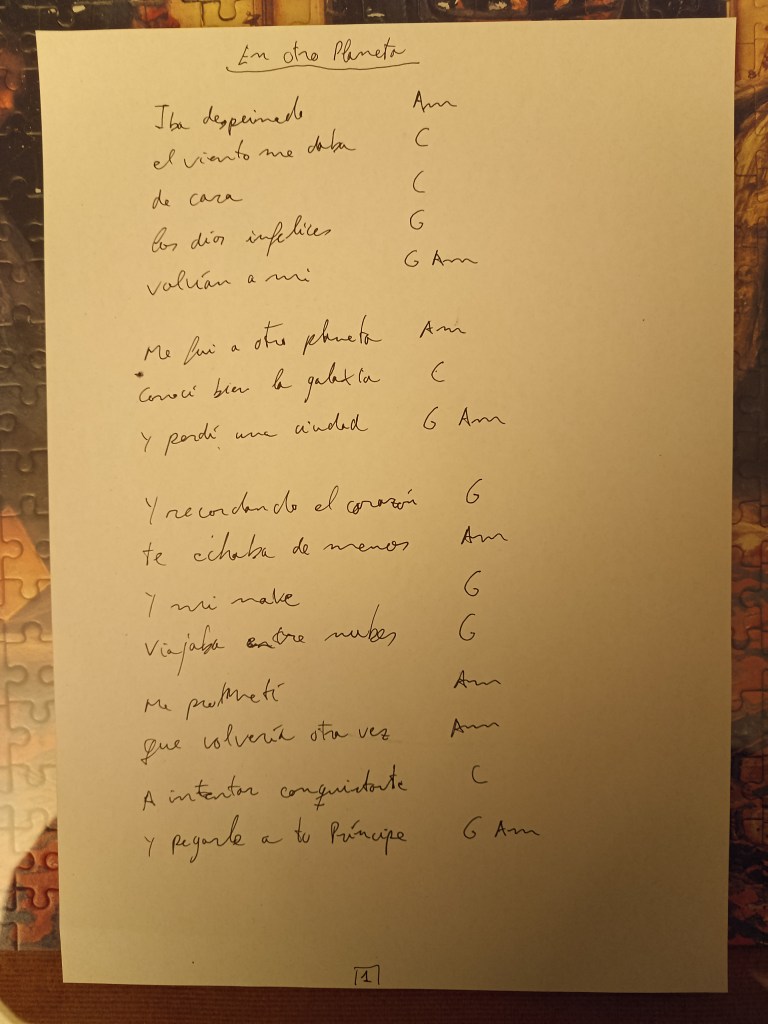 En otro Planeta
Iba despeinado Am
el viento me daba C
de cara C
los días infelices G
volvían a mi G Am
Me fui a otro planeta Am
Conocí bien la galaxia C
Y perdí una ciudad G Am
Y recordando el corazón G
te echaba de menos Am
Y mi nave G
viajaba entre nubes G
Me prometí Am
que volvería otra vez Am
A intentar conquistarte C
Y pegarle a tu Príncipe G Am
1